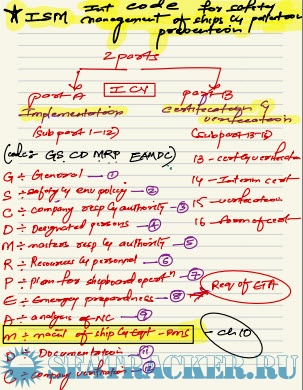 * ISM Int code for safety
management of ships & pollution
prevention
2 parts
part A ICY part B
Implementation Certification &
verification
(subpart 1-12) (subpart 13-16)
(code: GS CD MRP EAMDC)
G ÷ General - 1
S ÷ safety & env policy - 2
C ÷ company resp & authority - 3
D ÷ Designated persons - 4
M ÷ masters resp & authority - 5
R ÷ Resources & personnel - 6
P ÷ plan for shipboard opertn - 7
E ÷ Emergency prepardness - 8
A ÷ analysis of NC - 9
m ÷ maint of ship & Eqpt - PMS - ch 10
D ÷ Documentation 11
company verification 12
13 - cert & verification
14 - Interim cert
15 verification
16 form of cert
Req of ETA
SEATRACKER.RU